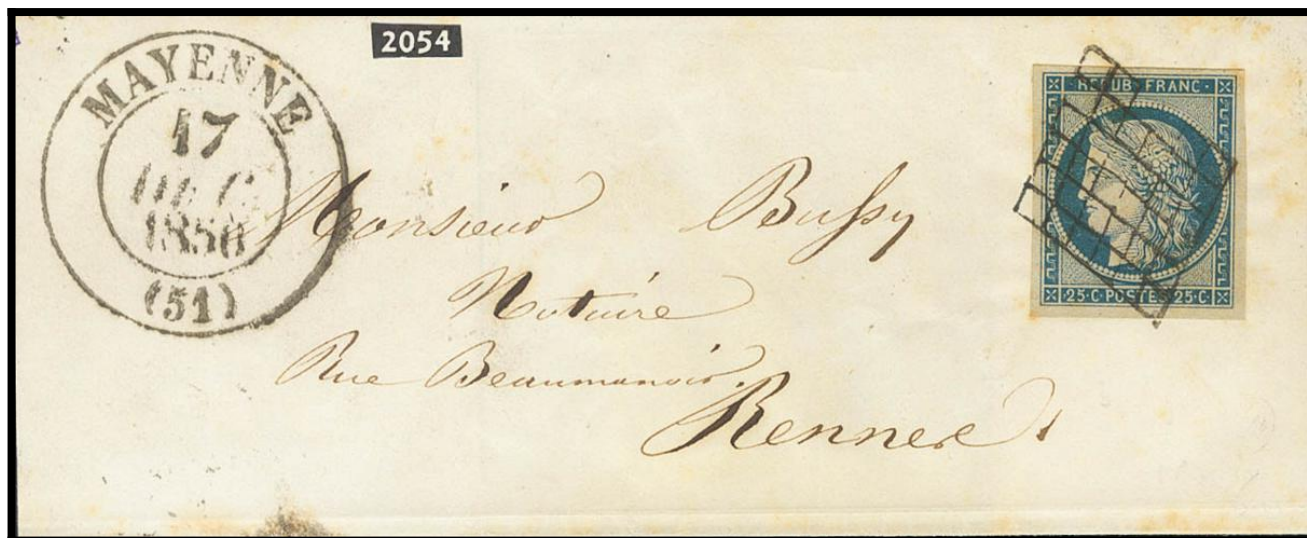 2054
MAYENNE
17
DEC.
1850
(51)
REPUB·FRANC·
25·C·POSTES·25·C·
Monsieur Bussy
Notaire
Rue Beaumanoir.
Rennes